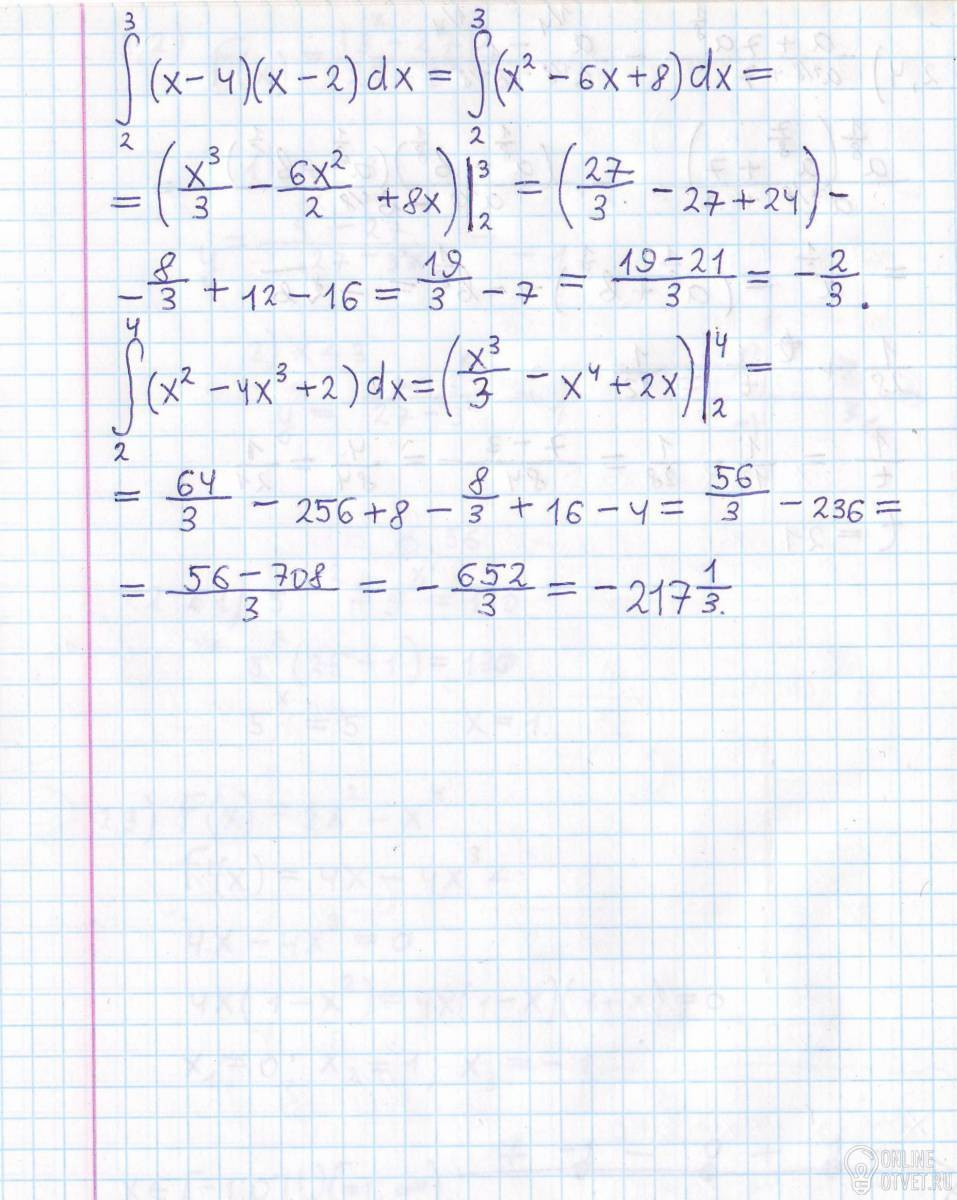 ∫₂³ (x − 4)(x − 2) dx = ∫₂³ (x² − 6x + 8) dx =
= (x³/3 − 6x²/2 + 8x)|₂³ = (27/3 − 27 + 24) −
− 8/3 + 12 − 16 = 19/3 − 7 = (19 − 21)/3 = − 2/3.
∫₂⁴ (x² − 4x³ + 2) dx = (x³/3 − x⁴ + 2x)|₂⁴ =
= 64/3 − 256 + 8 − 8/3 + 16 − 4 = 56/3 − 236 =
= (56 − 708)/3 = − 652/3 = − 217 1/3.
ONLINE
OTVET.RU